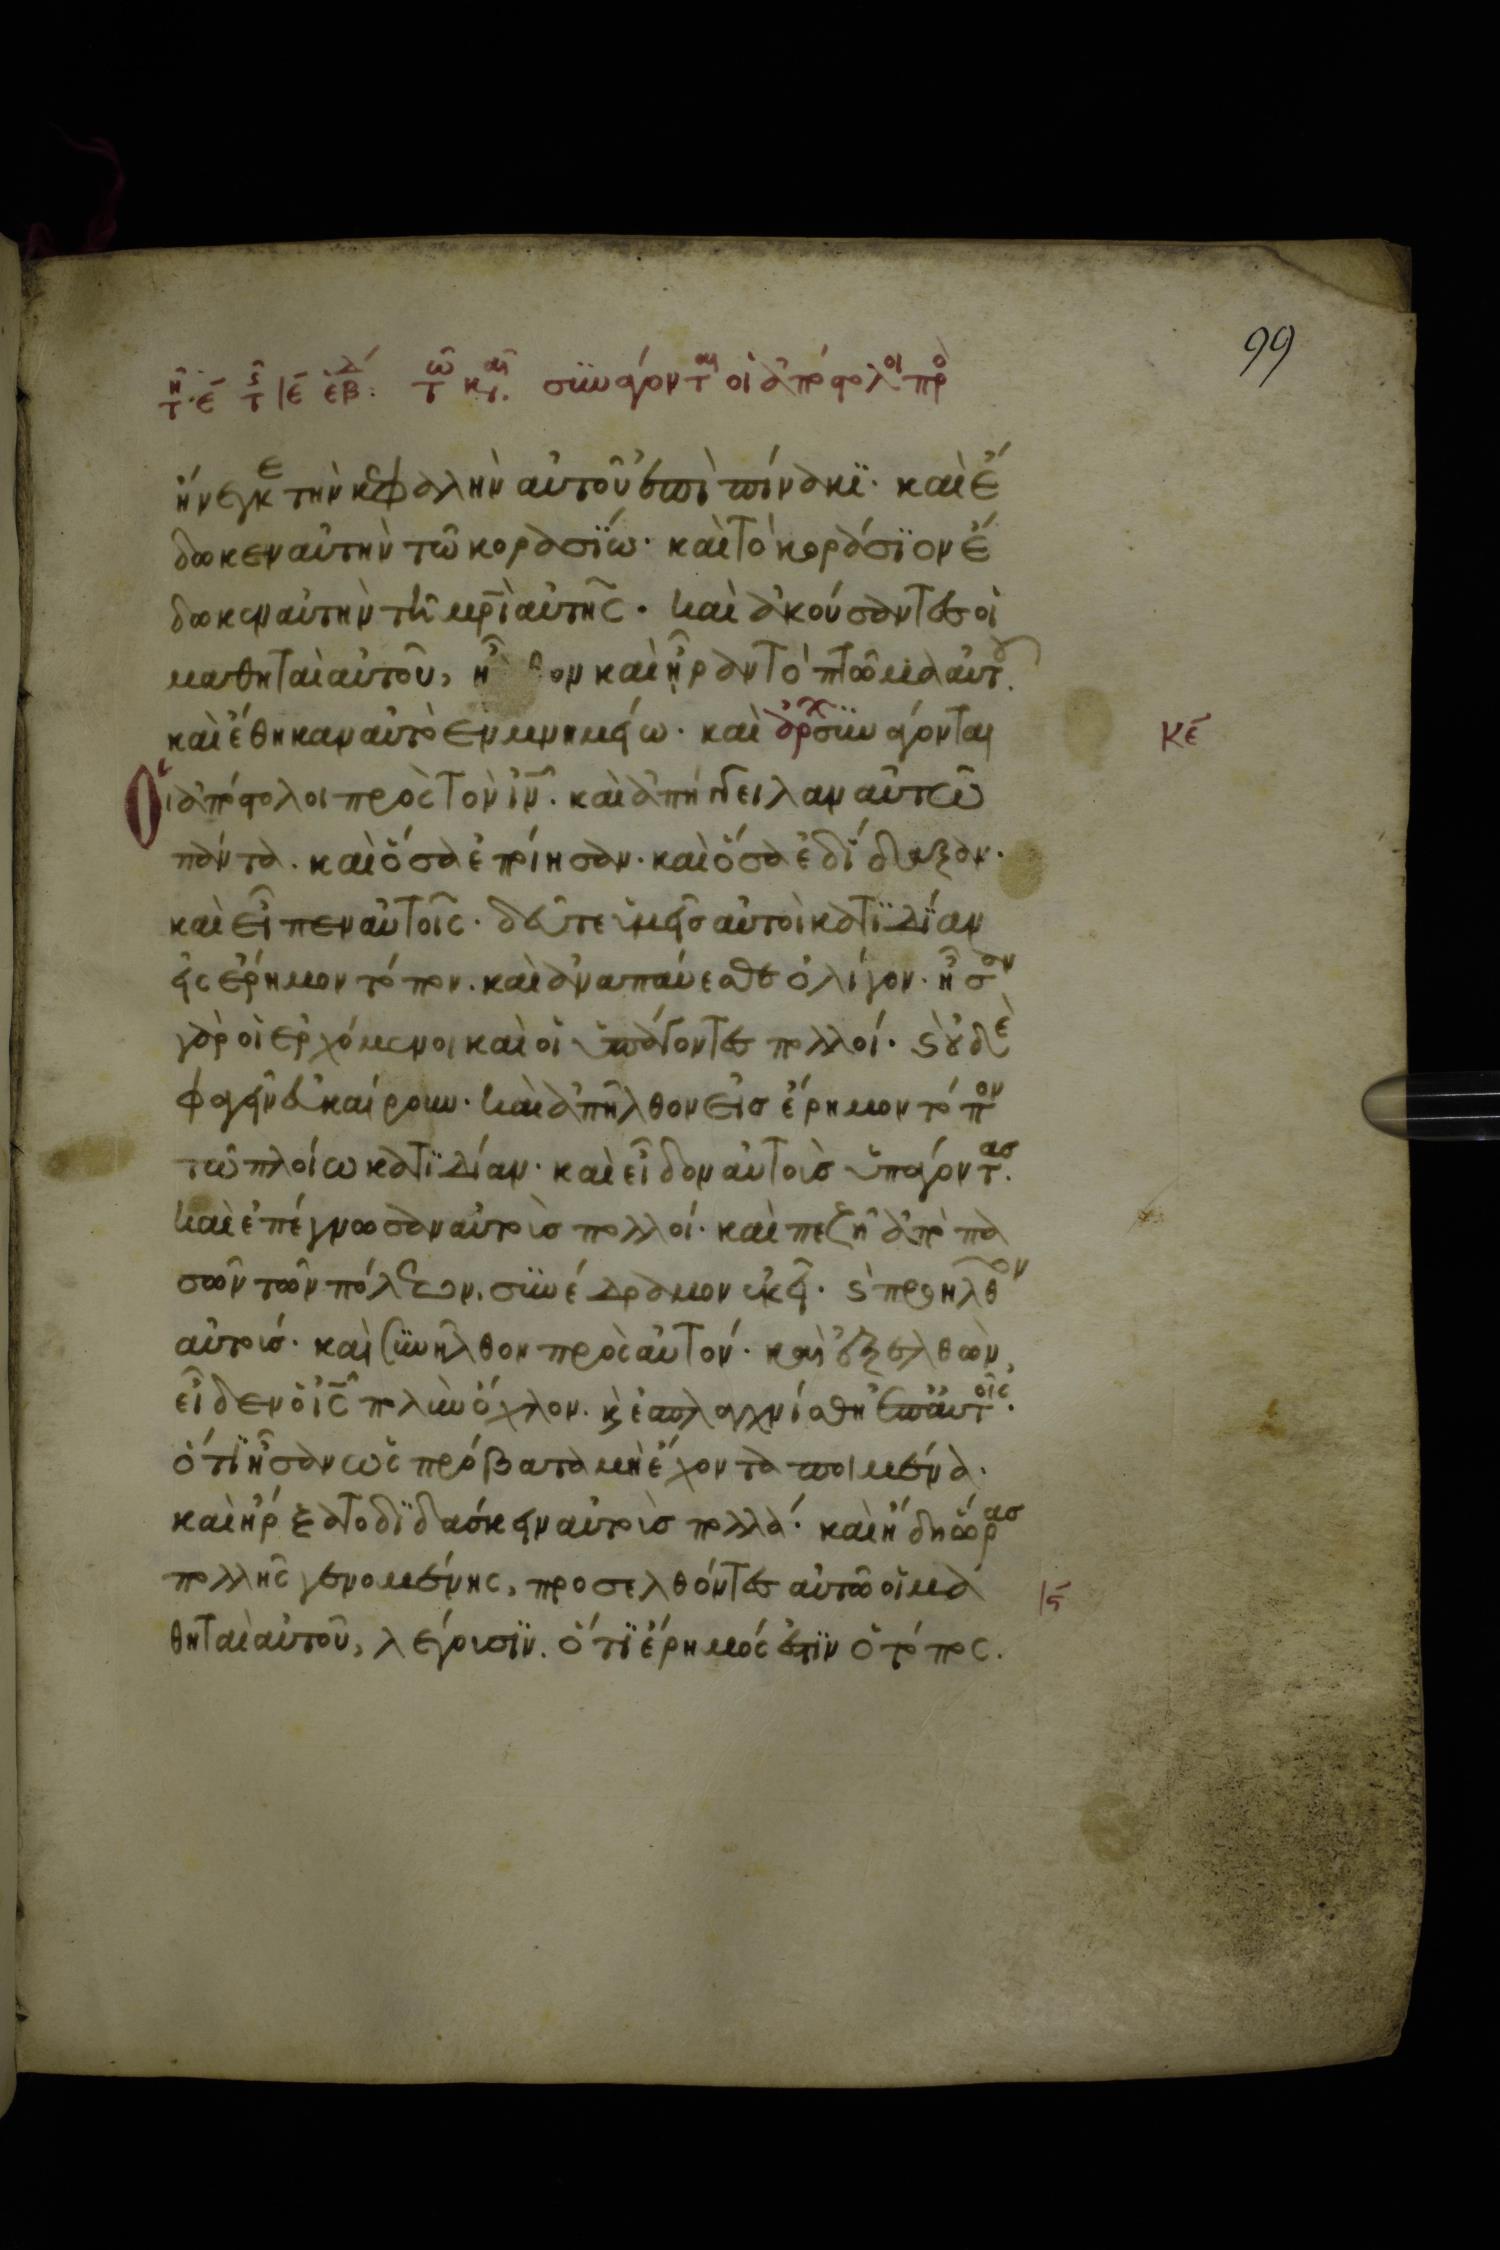 99
τῆ ε´ τῆς ιε´ ἑβδ: τῶ καιρ. συνάγονται οἱ ἀπόστολοι πρὸ
ἤνεγκε τὴν κεφαλὴν αὐτοῦ ἐπὶ πίνακϊ· καὶ ἔ
δωκεν αὐτὴν τῶ κορασΐω· καὶ τὸ κοράσϊον ἔ
δωκεν αὐτὴν τῆ μρὶ αὐτῆς· καὶ ἀκούσαντες οἱ
μαθηταὶ αὐτοῦ, ἦλθον καὶ ἦραν τὸ πτῶμα αὐτοῦ.
καὶ ἔθηκαν αὐτὸ ἐν μνημείω· καὶ ἀρχ συνάγονται
Οἱ ἀπόστολοι πρὸς τὸν ιν· καὶ ἀπήγγειλαν αὐτῶ
πάντα. καὶ ὅσα ἐποίησαν· καὶ ὅσα ἐδίδαξαν·
καὶ εἶπεν αὐτοῖς· δεῦτε ὑμεῖς αὐτοὶ κατϊδΐαν
εἰς ἔρημον τόπον. καὶ ἀναπαύεσθε ὀλίγον· ἦσαν
γὰρ οἱ ἐρχόμενοι καὶ οἱ ὑπάγοντες πολλοί· καὶ οὐδὲ
φαγεῖν εὐκαίρουν· καὶ ἀπῆλθον εἰς ἔρημον τόπον
τῶ πλοίω κατϊδίαν· καὶ εἶδον αὐτοὺς ὑπάγοντας.
καὶ ἐπέγνωσαν αὐτοὺς πολλοί· καὶ πεζῆ ἀπὸ πα
σῶν τῶν πόλεων. συνέδραμον ἐκεῖ· καὶ προῆλθον
αὐτούς· καὶ συνῆλθον πρὸς αὐτόν· καὶ ἐξελθὼν,
εἶδεν ὁ ις πολὺν ὄχλον. καὶ ἐσπλαγχνίσθη ἐπ αὐτοῖς·
ὅτϊ ἦσαν ὡς πρόβατα μὴ ἔχοντα ποιμένα·
καὶ ἤρξατο δϊδάσκειν αὐτοὺς πολλά· καὶ ἤδη ὥρας
πολλῆς γενομένης, προσελθόντες αὐτῶ οἱ μα
θηταὶ αὐτοῦ, λέγουσϊν. ὅτϊ ἔρημός ἐστϊν ὁ τόπος.
κε´
ις´